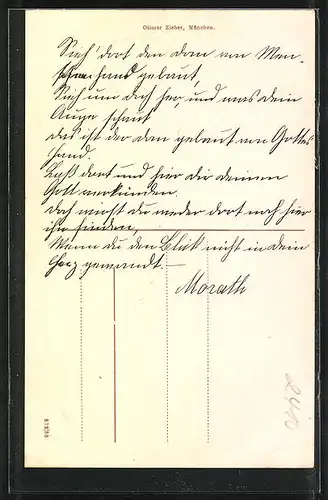 Ottmar Zieher, München.
Sieh' dort den dom von Men-
schenhand gebaut,
Sieh um dich her, und was dein
Auge schaut
das ist der dom gebaut von Gottes
Hand.
Laß dort und hier dir deinen
Gott verkünden.
doch wirst du weder dort noch hier
ihn finden,
Wenn du den Blick nicht in dein
Herz gewandt. –
Morath